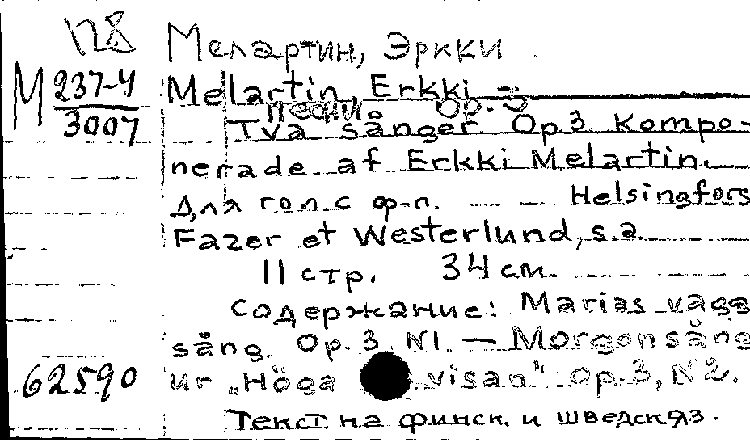 128
Мелартин, Эркки.
М 237-4
3007
Melartin, Erkki -
песни Op. 3
Två sånger Op 3 Kompo-
nerade af Erkki Melartin.
Для гол. с ф-п. — Helsingfors
Fazer et Westerlund, s.a.
11 стр. 34 см.
Содержание: Marias vagg
sång. Op. 3, N1. — Morgonsång
62590
ur „Höga visan" op. 3, N2.
Текст на финск. и шведск яз.